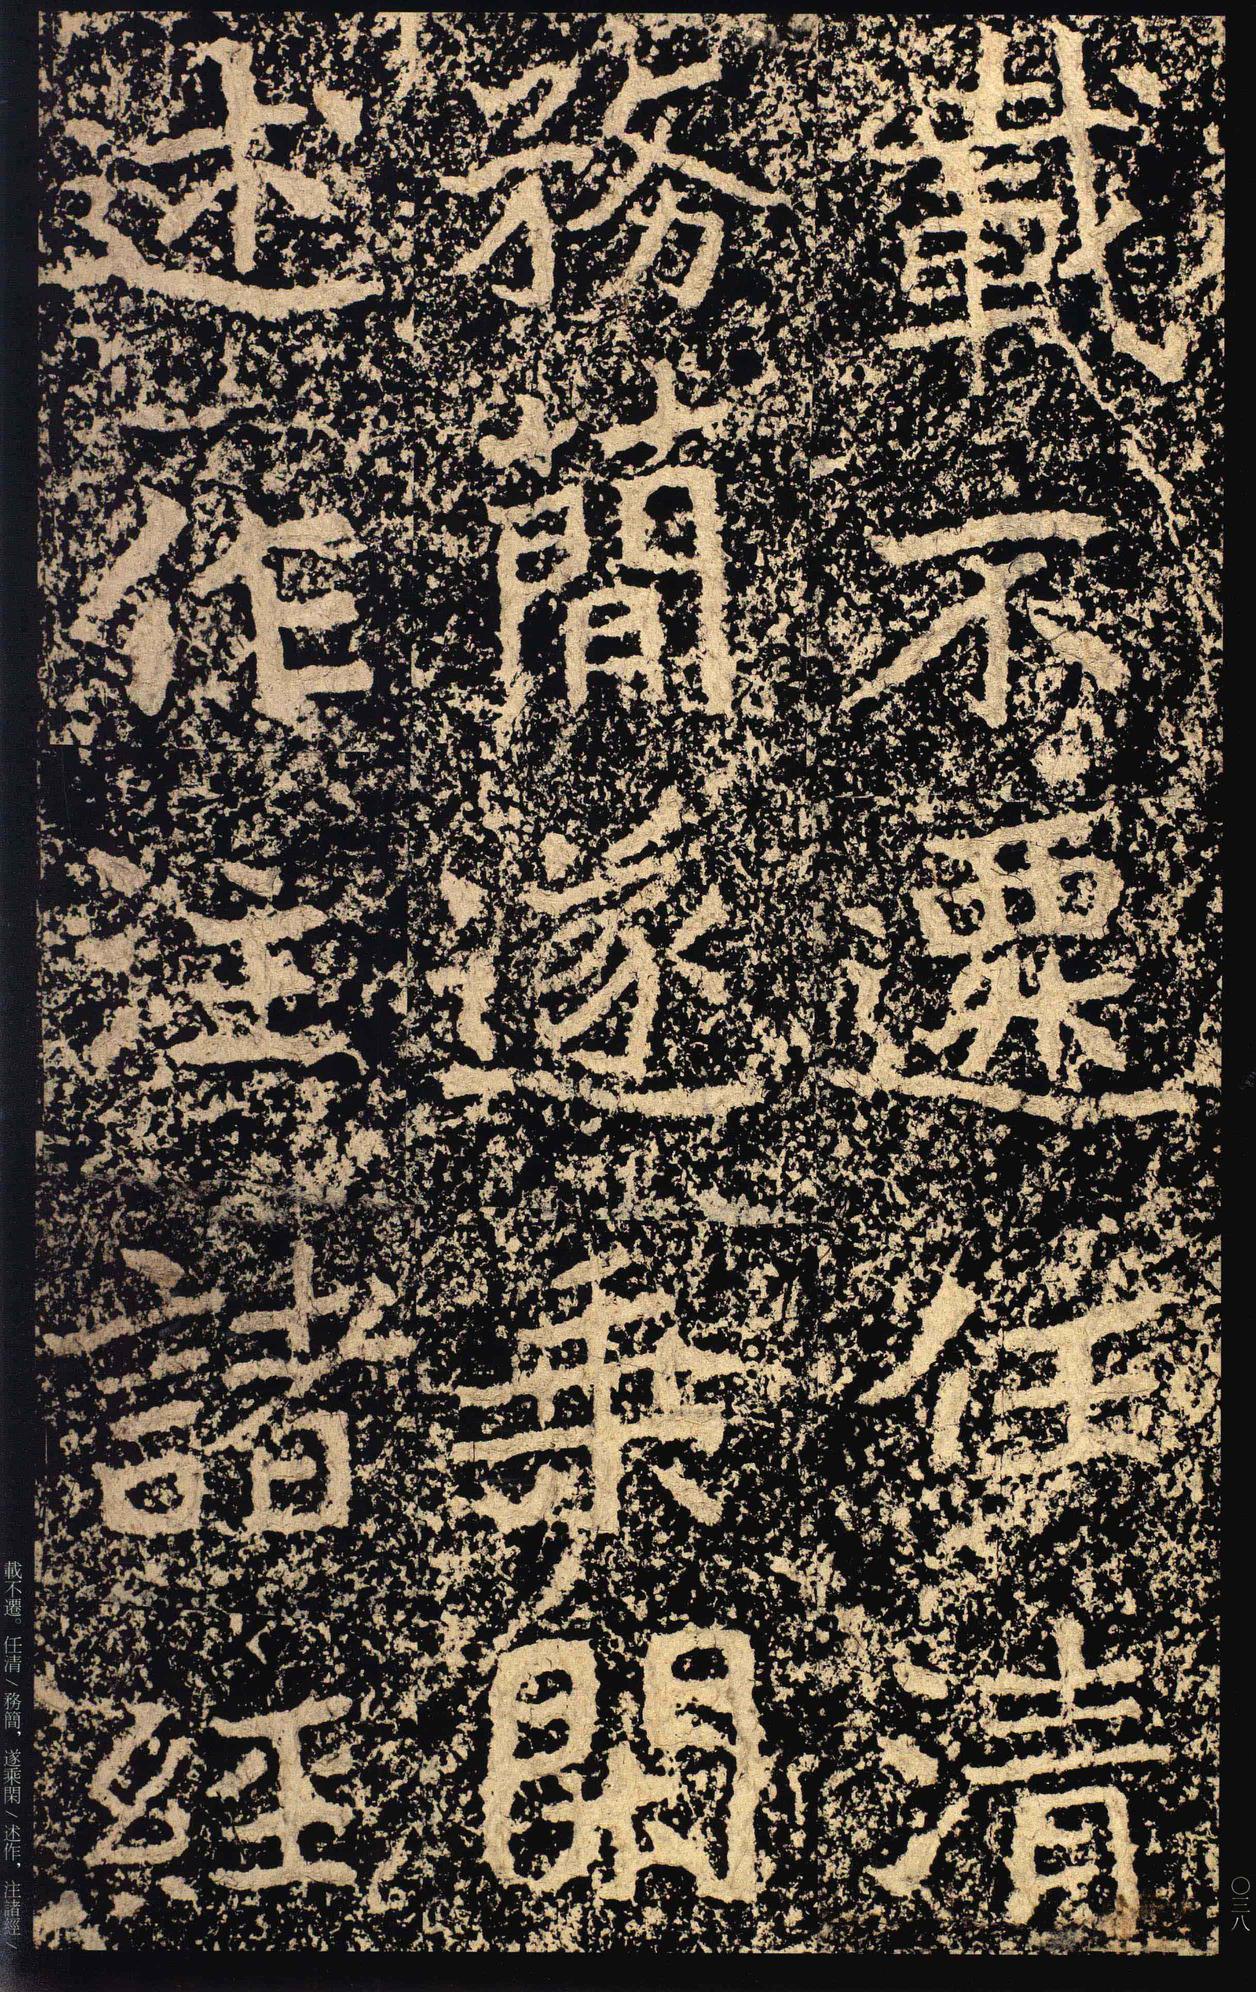 載不遷任清
務簡遂乘閑
述作注諸經
載不遷。任清/務簡，遂乘閑/述作，注諸經/
〇三八